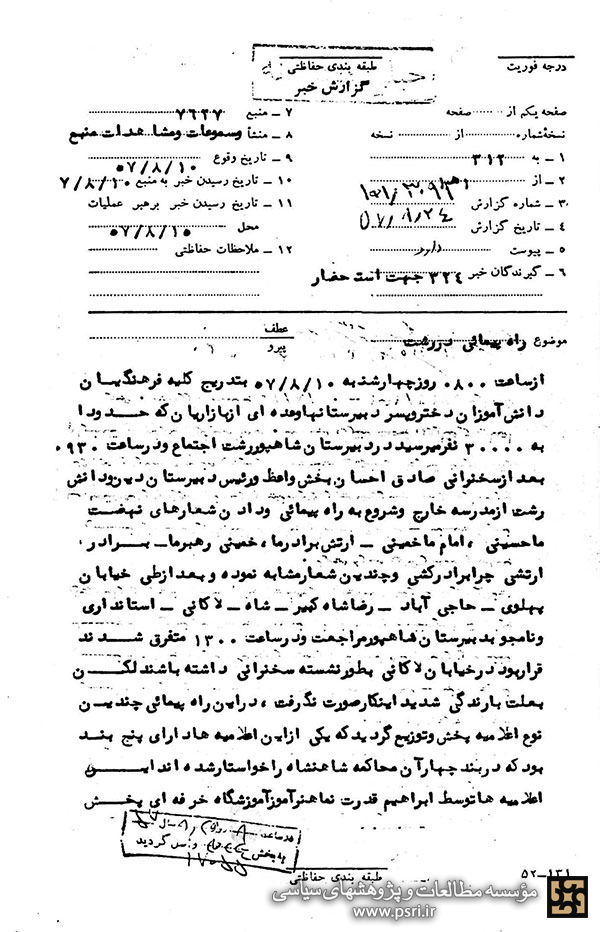 درجه فوریت
طبقه بندی حفاظتی
گزارش خبر
صفحه یکم از صفحه
نسخهٔ شماره از نسخه
۱ ـ به ۳۱۲
۲ ـ از
۳ ـ شماره گزارش
۴ ـ تاریخ گزارش
۵ ـ پیوست
۶ ـ گیرندگان خبر ۳۲۴ جهت استحضار
۷ ـ منبع ۷۶۲۷
۸ ـ منشأ مسموعات و مشاهدات منبع
۹ ـ تاریخ وقوع ۵۷/۸/۱۰
۱۰ ـ تاریخ رسیدن خبر به منبع ۵۷/۸/۱۰
۱۱ ـ تاریخ رسیدن خبر برهبر عملیات
محل ۵۷/۸/۱۰
۱۲ ـ ملاحظات حفاظتی
موضوع راه پیمائی در رشت
عطف
پیرو
از ساعت ۰۸۰۰ روز چهارشنبه ۵۷/۸/۱۰ بتدریج کلیه فرهنگیان
دانش آموزان دختر و پسر دبیرستانها و عده ای از بازاریان که حدودا
به ۳۰۰۰۰ نفر میرسید در دبیرستان شاهپور رشت اجتماع و در ساعت ۰۹۳۰
بعد از سخنرانی صادق احسان بخش واعظ و رئیس دبیرستان دین و دانش
رشت از مدرسه خارج و شروع به راه پیمائی و دادن شعارهای نهضت
ما حسینی ، امام ما خمینی ـ ارتش برادر ما ، خمینی رهبر ما ـ برادر
ارتشی چرا برادر کشی و چندین شعار مشابه نموده و بعد از طی خیابان
پهلوی ـ حاجی آباد ـ رضا شاه کبیر ـ شاه ـ لاکانی ـ استانداری
و نامجو بد بیرستان شاهپور مراجعت و در ساعت ۱۳۰۰ متفرق شدند
قرار بود در خیابان لاکانی بطور نشسته سخنرانی داشته باشند لکن
بعلت بارندگی شدید اینکار صورت نگرفت ، در این راه پیمائی چندین
نوع اعلامیه پخش و توزیع گردید که یکی از این اعلامیه ها دارای پنج بند
بود که در بند چهار آن محاکمه شاهنشاه را خواستار شده اند این
اعلامیه ها توسط ابراهیم قدرت نما هنرآموز آموزشگاه حرفه ای پخش
در ساعت
به بخش
واصل گردید
طبقه بندی حفاظتی
۵۲ـ۱۳۱
مؤسسه مطالعات و پژوهشهای سیاسی
www.psri.ir